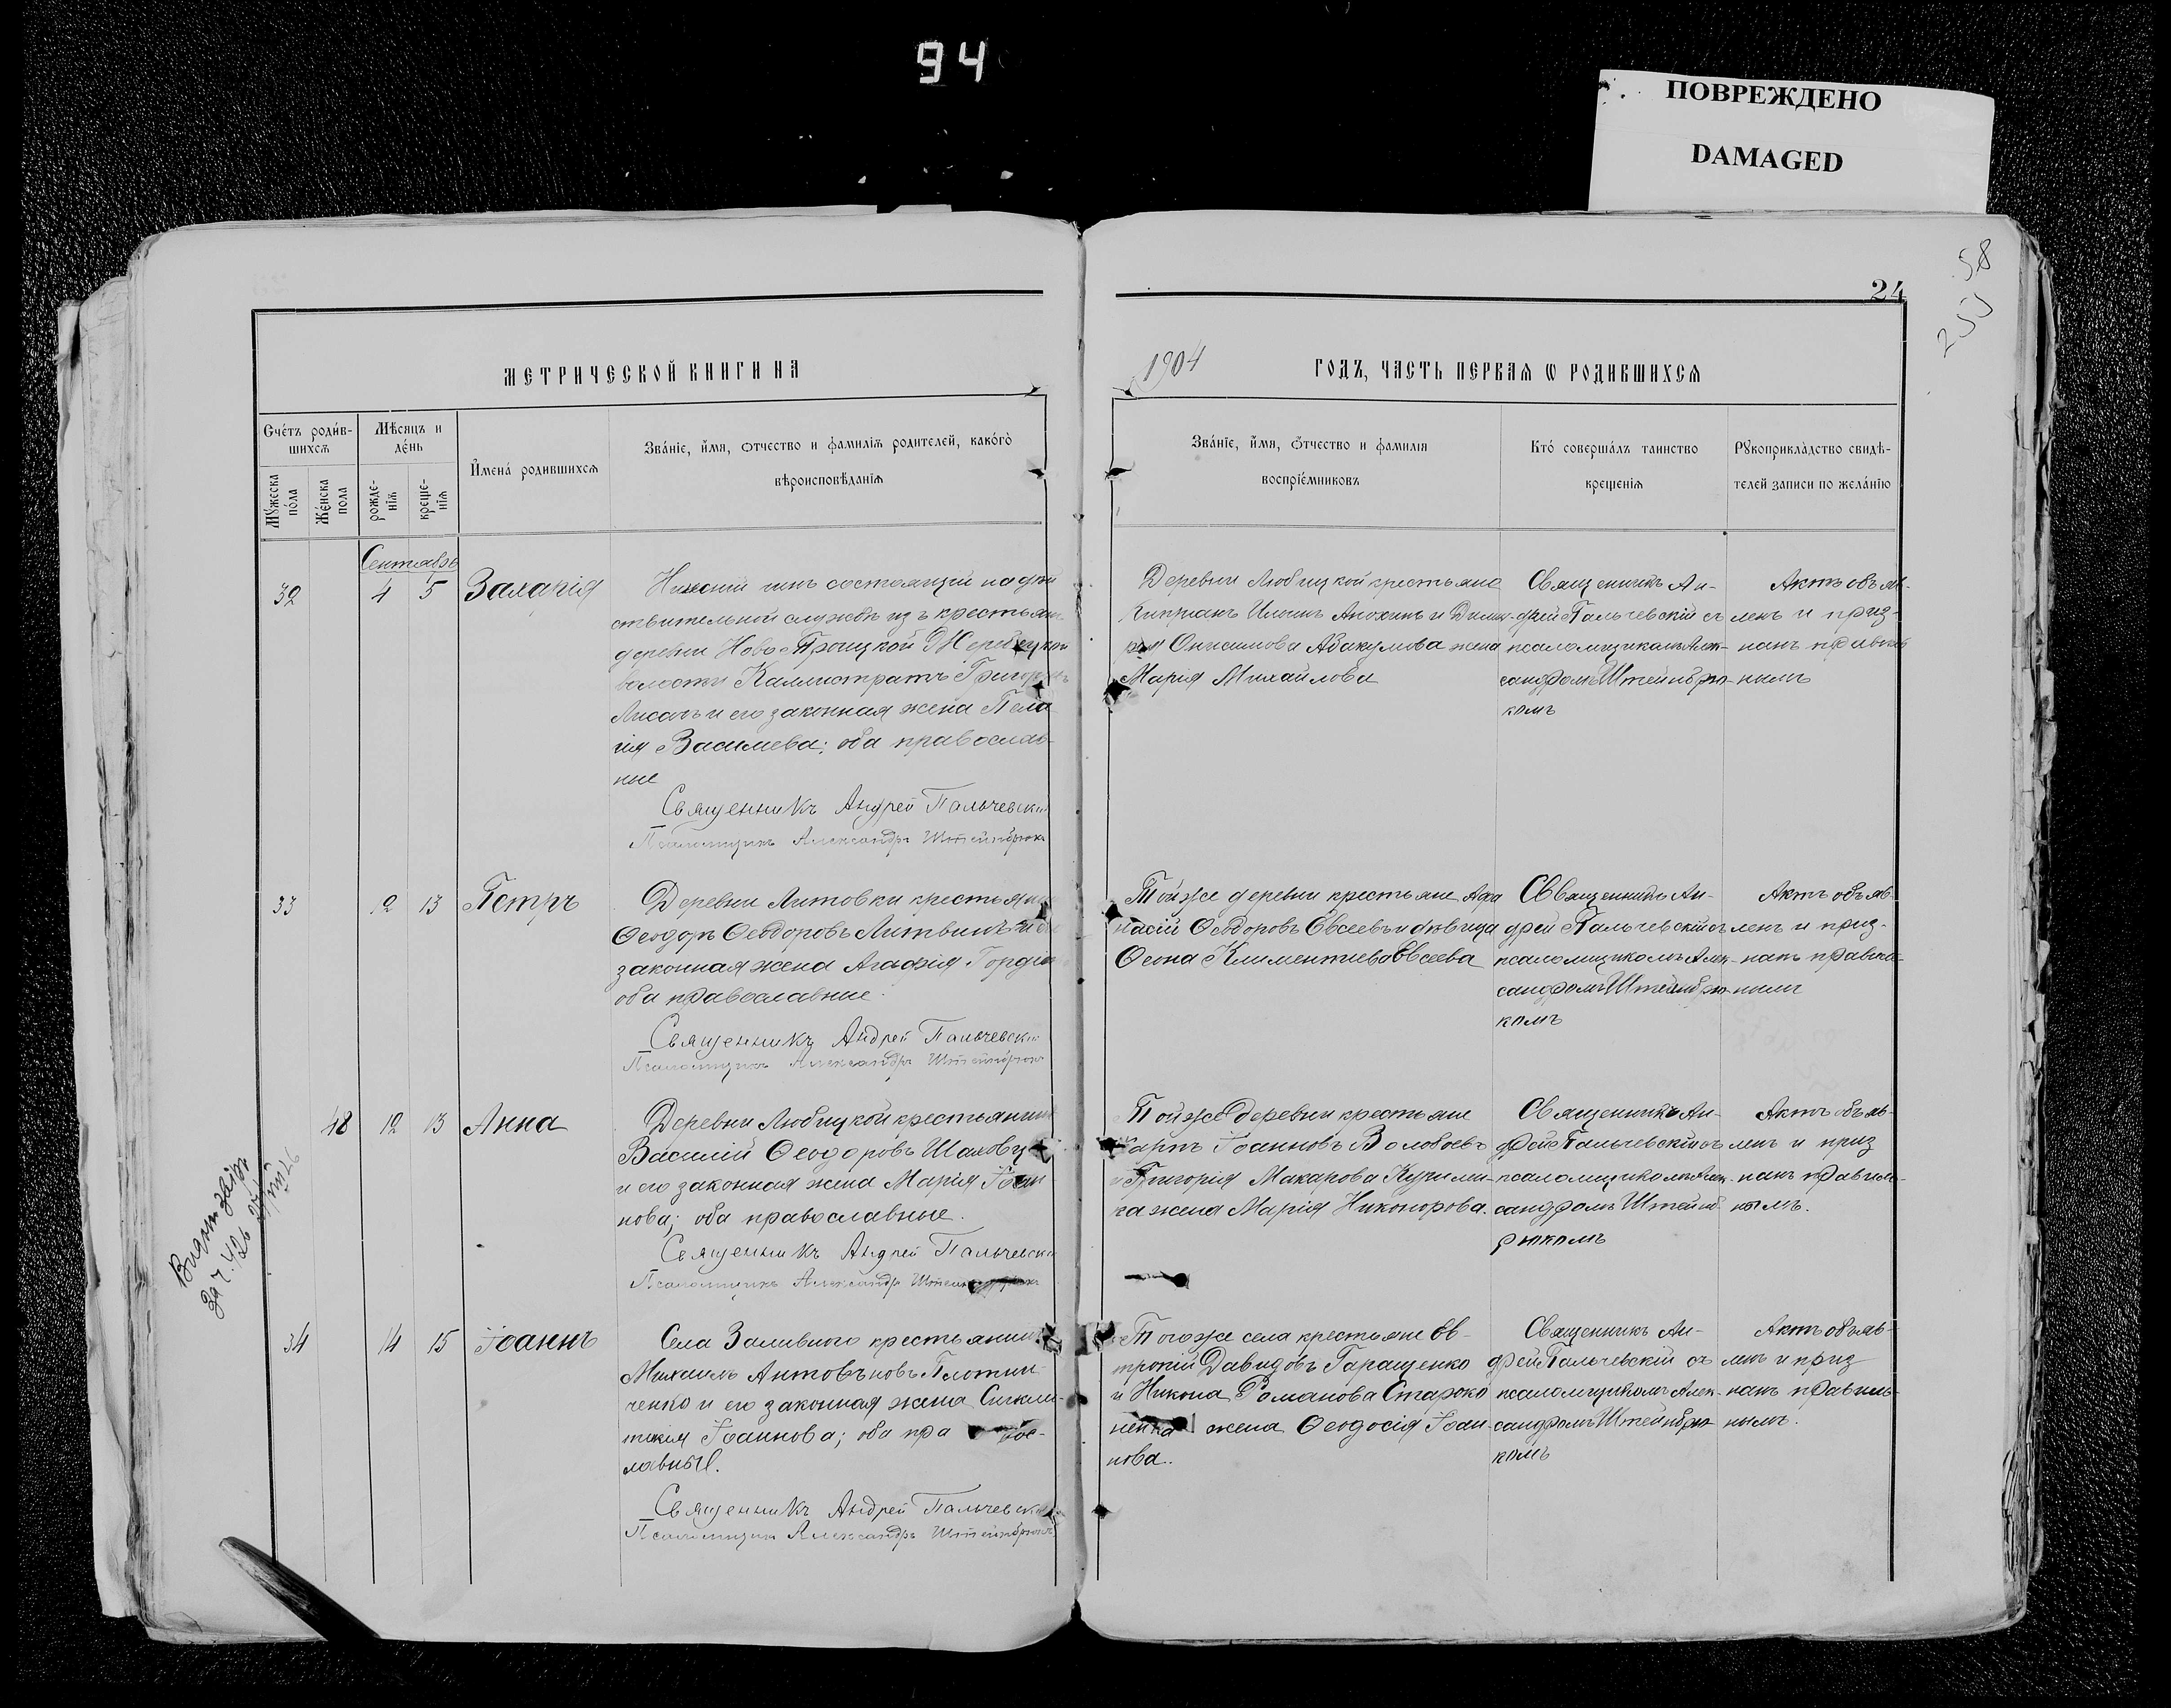 94
ПОВРЕЖДЕНО
DAMAGED
58
24
МЕТРИЧЕСКОЙ КНИГИ НА
1904
ГОДЪ, ЧАСТЬ ПЕРВАЯ Ѡ РОДИВШИХСЯ
Счéтъ роди́в-
шихсѧ
Мꙋ́жеска
пóла
Жéнска
пола
Мѣ́сяцъ и
дéнь
рожде-
нїѧ
креще-
нїѧ
И҆мена́ родившихсѧ
Зва́нїе, и҆́мя, ѻтчество и фамилїѧ родителей, како́гѡ
вѣроисповѣ́данїѧ
Зва́нїе, и҆́мя, ѻтчество и фамилія
воспрїе́мниковъ
Кто́ соверша́лъ таинство
крещенїѧ
Рꙋкоприкла́дство свидѣ́-
телей записи по жела́нїю
Сентябрь
32
4
5
Захарія
Нижній чинъ состоящій на дѣй
ствительной службѣ изъ крестьянъ
деревни Ново Троицкой Жеребецкой
волости Каллистратъ Григорьевъ
Лисачъ и его законная жена Пела
гія Василиева; оба православ-
ные
Священникъ Андрей Пальчевскій
Псаломщикъ Александръ Штейнбрюкъ
Деревни Любицкой крестьяне
Кипріанъ Илiинъ Анохинъ и
Онисимова Абакумова жена
Марія Михайлова
Священникъ Ан-
дрей Пальчевскій съ
псаломщикомъ Алек-
сандромъ Штейнбрю-
комъ
Актъ объяв-
ленъ и приз-
нанъ правиль
нымъ
33
12
13
Петръ
Деревни Литовки крестьянинъ
Ѳеодоръ Ѳеодоровъ Литвинъ и его
законная жена Агафія
оба православные.
Священникъ Андрей Пальчевскій
Псаломщикъ Александръ Штейнбрюкъ
Той же деревни крестьяне Афа
насій Ѳеодоровъ Евсеевъ и дѣвица
Ѳеона Климентиева Евсеева
Священникъ Ан-
дрей Пальчевскій съ
псаломщикомъ Алек-
сандромъ Штейнбрю-
комъ
Актъ объяв-
ленъ и приз-
нанъ правиль-
нымъ
48
12
13
Анна
Деревни Любицкой крестьянинъ
Василій Ѳеодоровъ
и его законная жена Марія Іоан
нова; оба православные.
Священникъ Андрей Пальчевскій
Псаломщикъ Александръ
Той же деревни крестьяне
Іоанновъ Волобоевъ
и Григорія Макарова
жена Марія Никонорова.
Священникъ Ан-
дрей Пальчевскій съ
псаломщикомъ Алек-
сандромъ Штейнб
рюкомъ
Актъ объяв-
ленъ и приз
нанъ правиль-
нымъ.
34
14
15
Іоаннъ
Села Заливного крестьянинъ
Михаилъ
ченко и его законная жена Сигкли-
тикія Іоаннова; оба правос-
лавный.
Священникъ Андрей Пальчевскій
Псаломщикъ Александръ Штейнбрюкъ
Того же села крестьяне Ев-
тропій Давидовъ Гаращенко
и Никона Романова Староко
ненка жена Ѳеодосія Іоан-
нова.
Священникъ Ан-
дрей Пальчевскій съ
псаломщикомъ Алек-
сандромъ Штейнбрю-
комъ
Актъ объяв-
ленъ и приз
нанъ правиль-
нымъ.